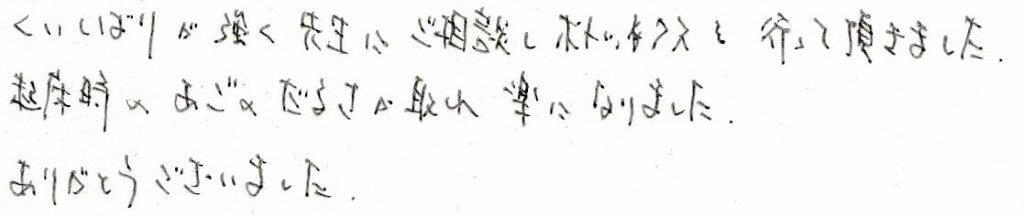 くいしばりが強く先生にご相談しボトックスを行って頂きました.
起床時のあごのだるさが取れ楽になりました.
ありがとうございました.